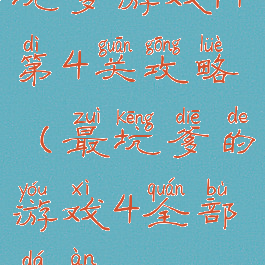 坑爹游戏什
dì guān gōng lüè
第4关攻略
zuì kēng diē de
(最坑爹的
yóu xì quán bù
游戏4全部
dá àn